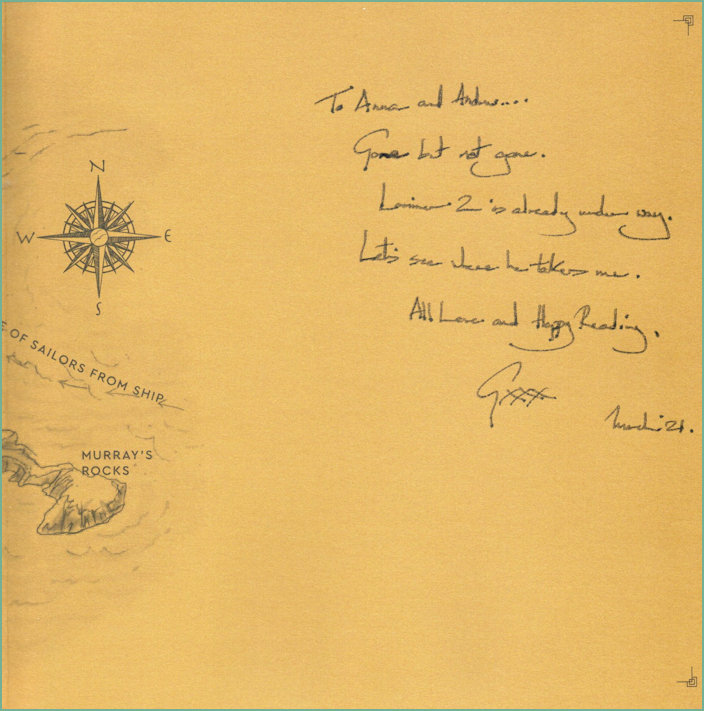 To Anna and Andrew....
Gone but not gone.
Lorimer 2 is already under way.
Let's see where he takes me.
All Love and Happy Reading.
Gxxx
March '21.
N
W E
S
E OF SAILORS FROM SHIP
MURRAY'S
ROCKS